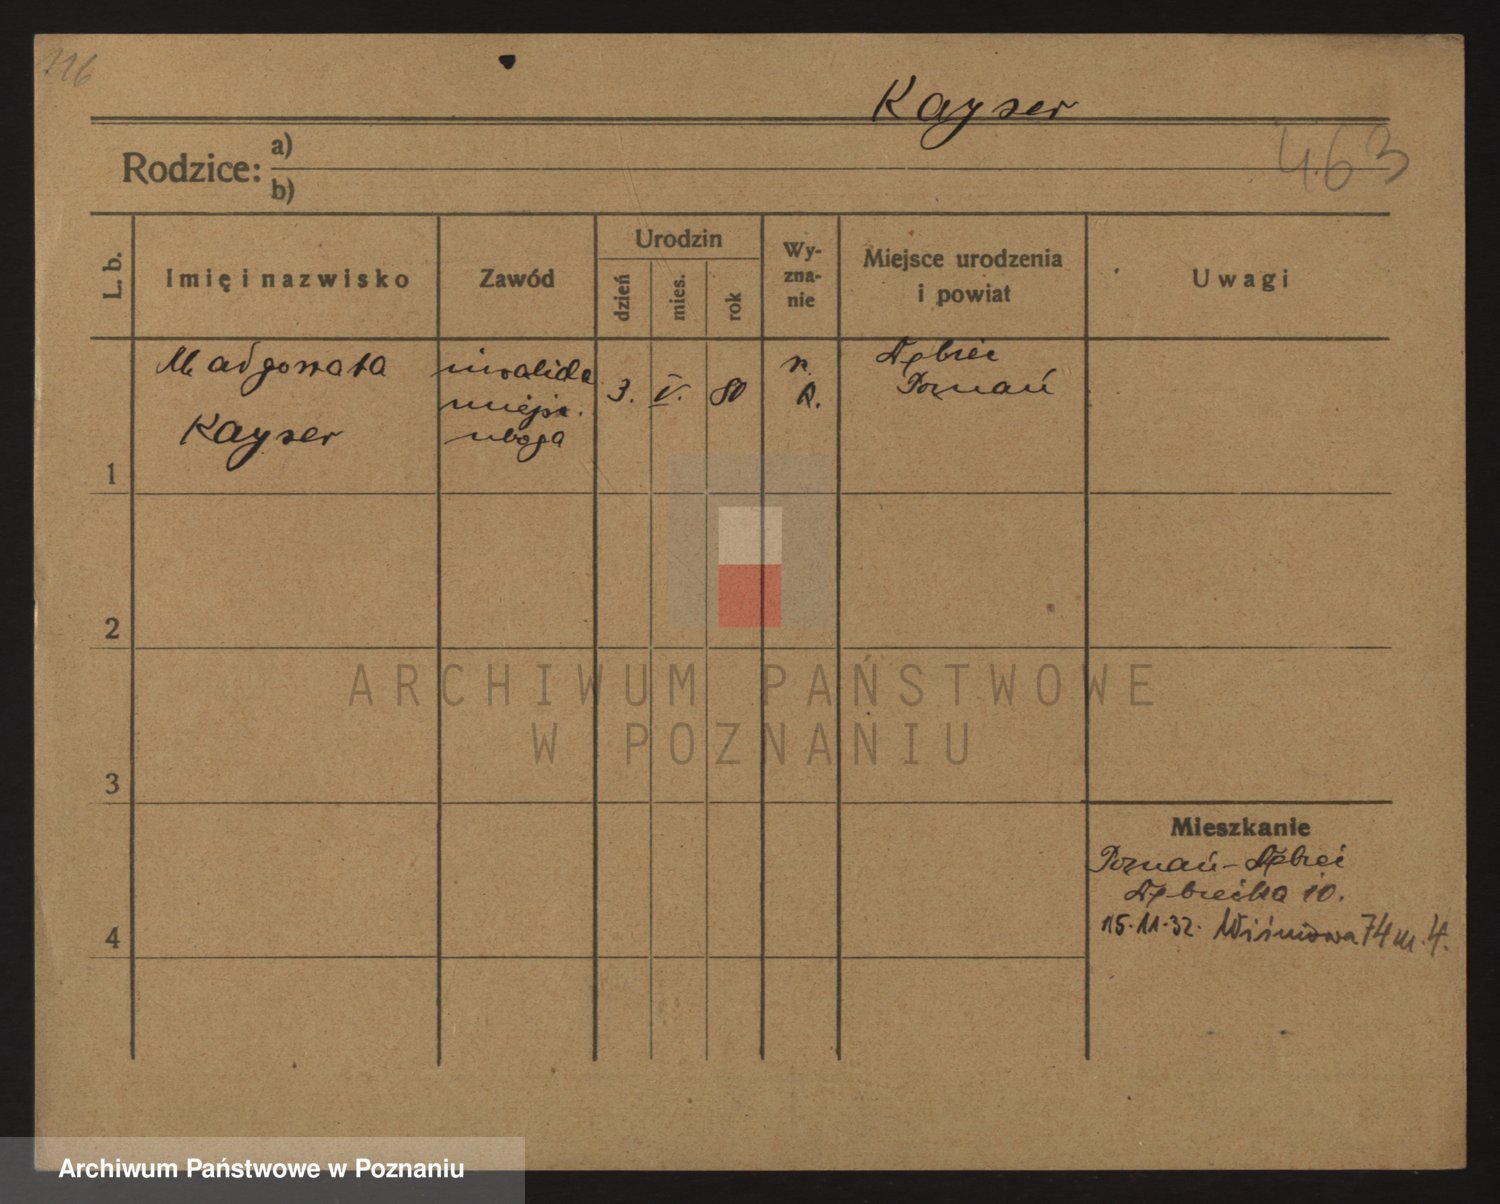 116
Kayser
463
Rodzice: a)
b)
L. b.
Imię i nazwisko
Zawód
Urodzin
dzień
mies.
rok
Wy-
zna-
nie
Miejsce urodzenia
i powiat
Uwagi
1
Małgorzata
Kayser
inwalida
miejsc.
uboga
3.
V.
80
r.
k.
Dębiec
Poznań
2
3
4
Mieszkanie
Poznań-Dębiec
Dębiecka 10.
15.11.32. Wiśniowa 74 m. 4.
ARCHIWUM PAŃSTWOWE
W POZNANIU
Archiwum Państwowe w Poznaniu